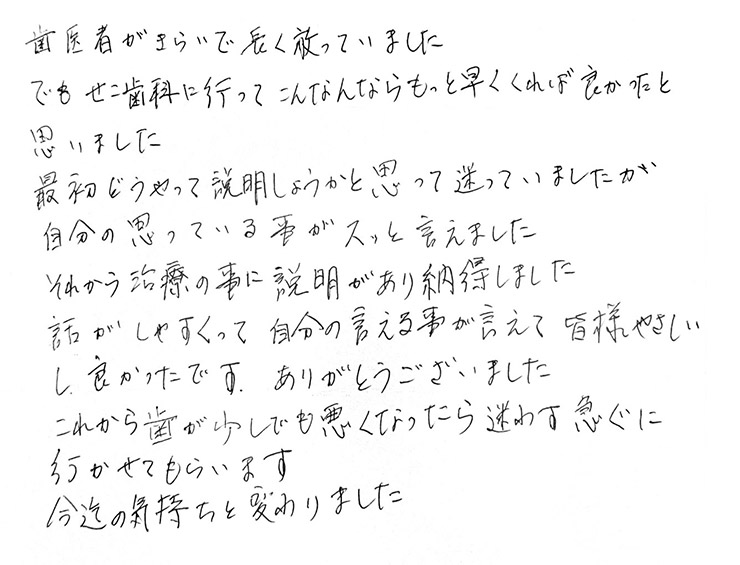 歯医者がきらいで長く放っていました
でもせこ歯科に行ってこんなんならもっと早くくれば良かったと
思いました
最初どうやって説明しょうかと思って迷っていましたが
自分の思っている事がスッと言えました
それから治療の事に説明があり納得しました
話がしやすくって自分の言える事が言えて皆様やさしい
し、良かったです。ありがとうございました
これから歯が少しでも悪くなったら迷わす急ぐに
行かせてもらいます
今迄の気持ちと変わりました